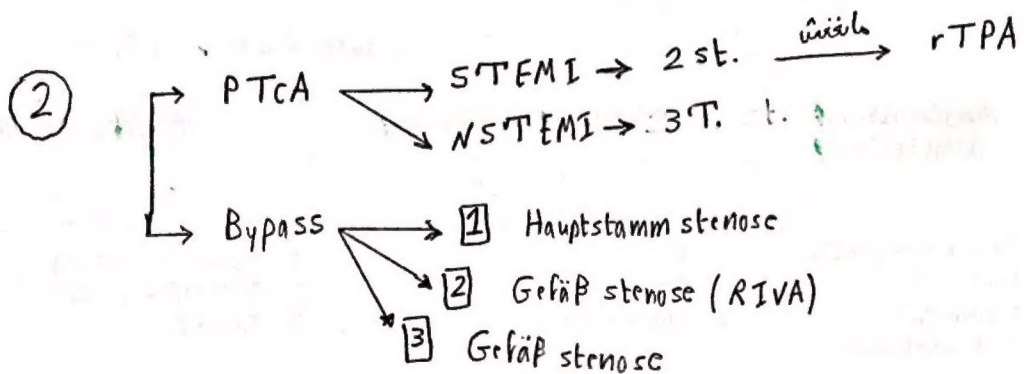 ② PTCA → STEMI → 2 st. → rTPA
→ NSTEMI → 3T.
Bypass → 1 Hauptstamm stenose
2 Gefäß stenose (RIVA)
3 Gefäß stenose